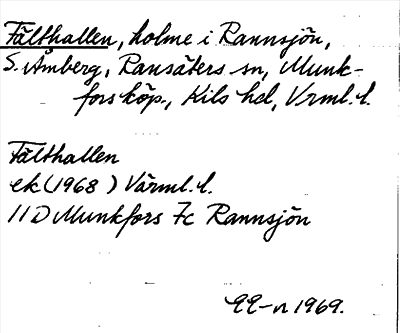 Fälthallen, holme i Rannsjön,
S. Åmberg, Ransäters sn, Munk-
fors köp., Kils hd, Vrml. l.
Fälthallen
ek (1968) Värml. l.
11 D Munkfors 7c Rannsjön
1969.